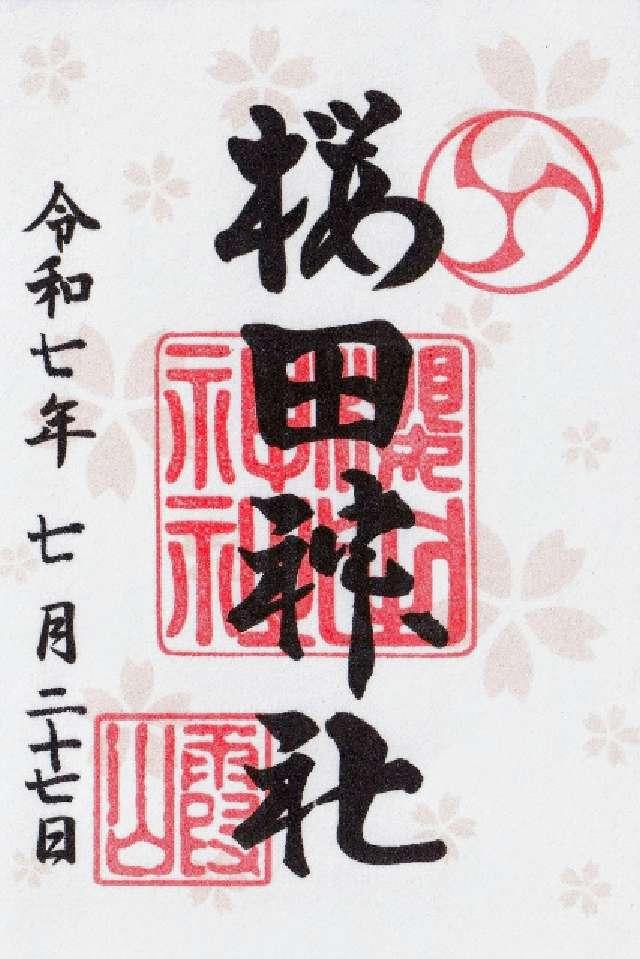 桜田神社
令和七年 七月二十七日
霞山